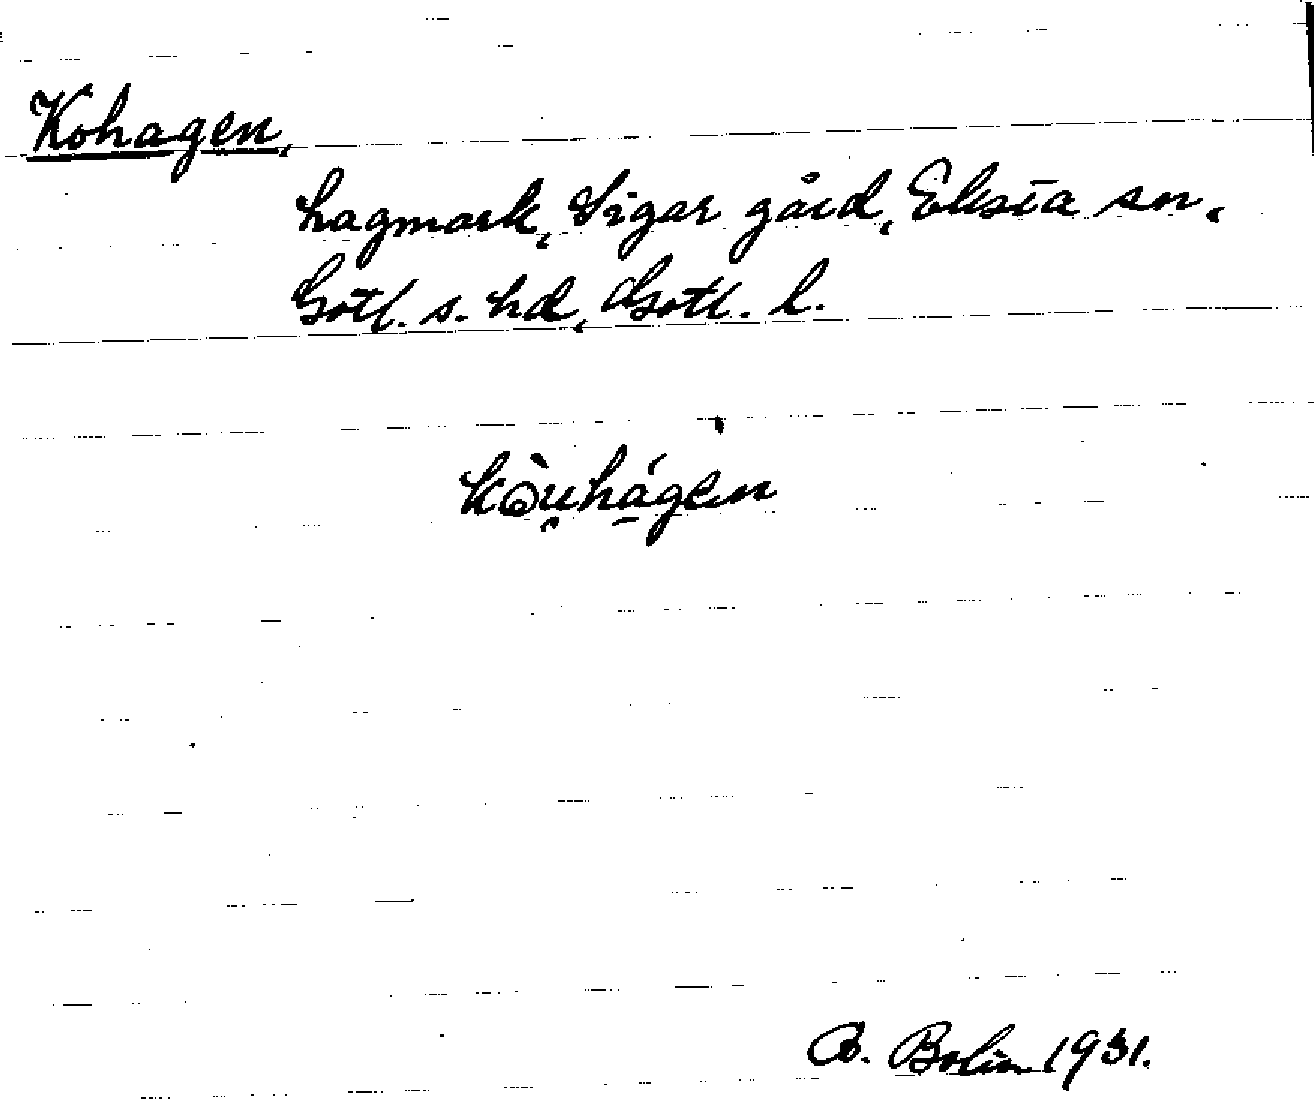 Kohagen,
hagmark, Sigar gård, Eksta sn.
Gotl. s. hd, Gotl. l.
kòu̯hágen
B. Bolin 1931.